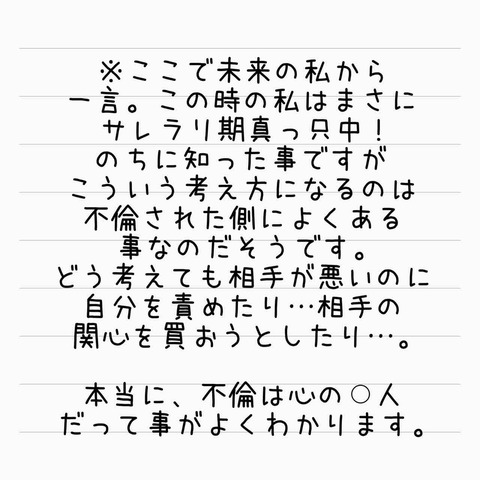 ※ここで未来の私から
一言。この時の私はまさに
サレラリ期真っ只中！
のちに知った事ですが
こういう考え方になるのは
不倫された側によくある
事なのだそうです。
どう考えても相手が悪いのに
自分を責めたり…相手の
関心を買おうとしたり…。
本当に、不倫は心の○人
だって事がよくわかります。